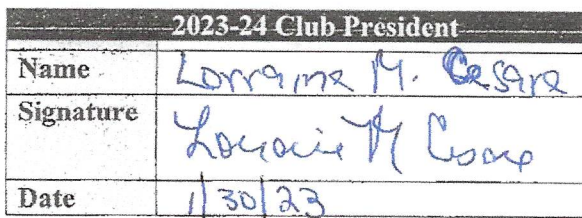 2023-24 Club President
Name Lorraine M. Cesare
Signature Lorraine M Cesare
Date 1/30/23